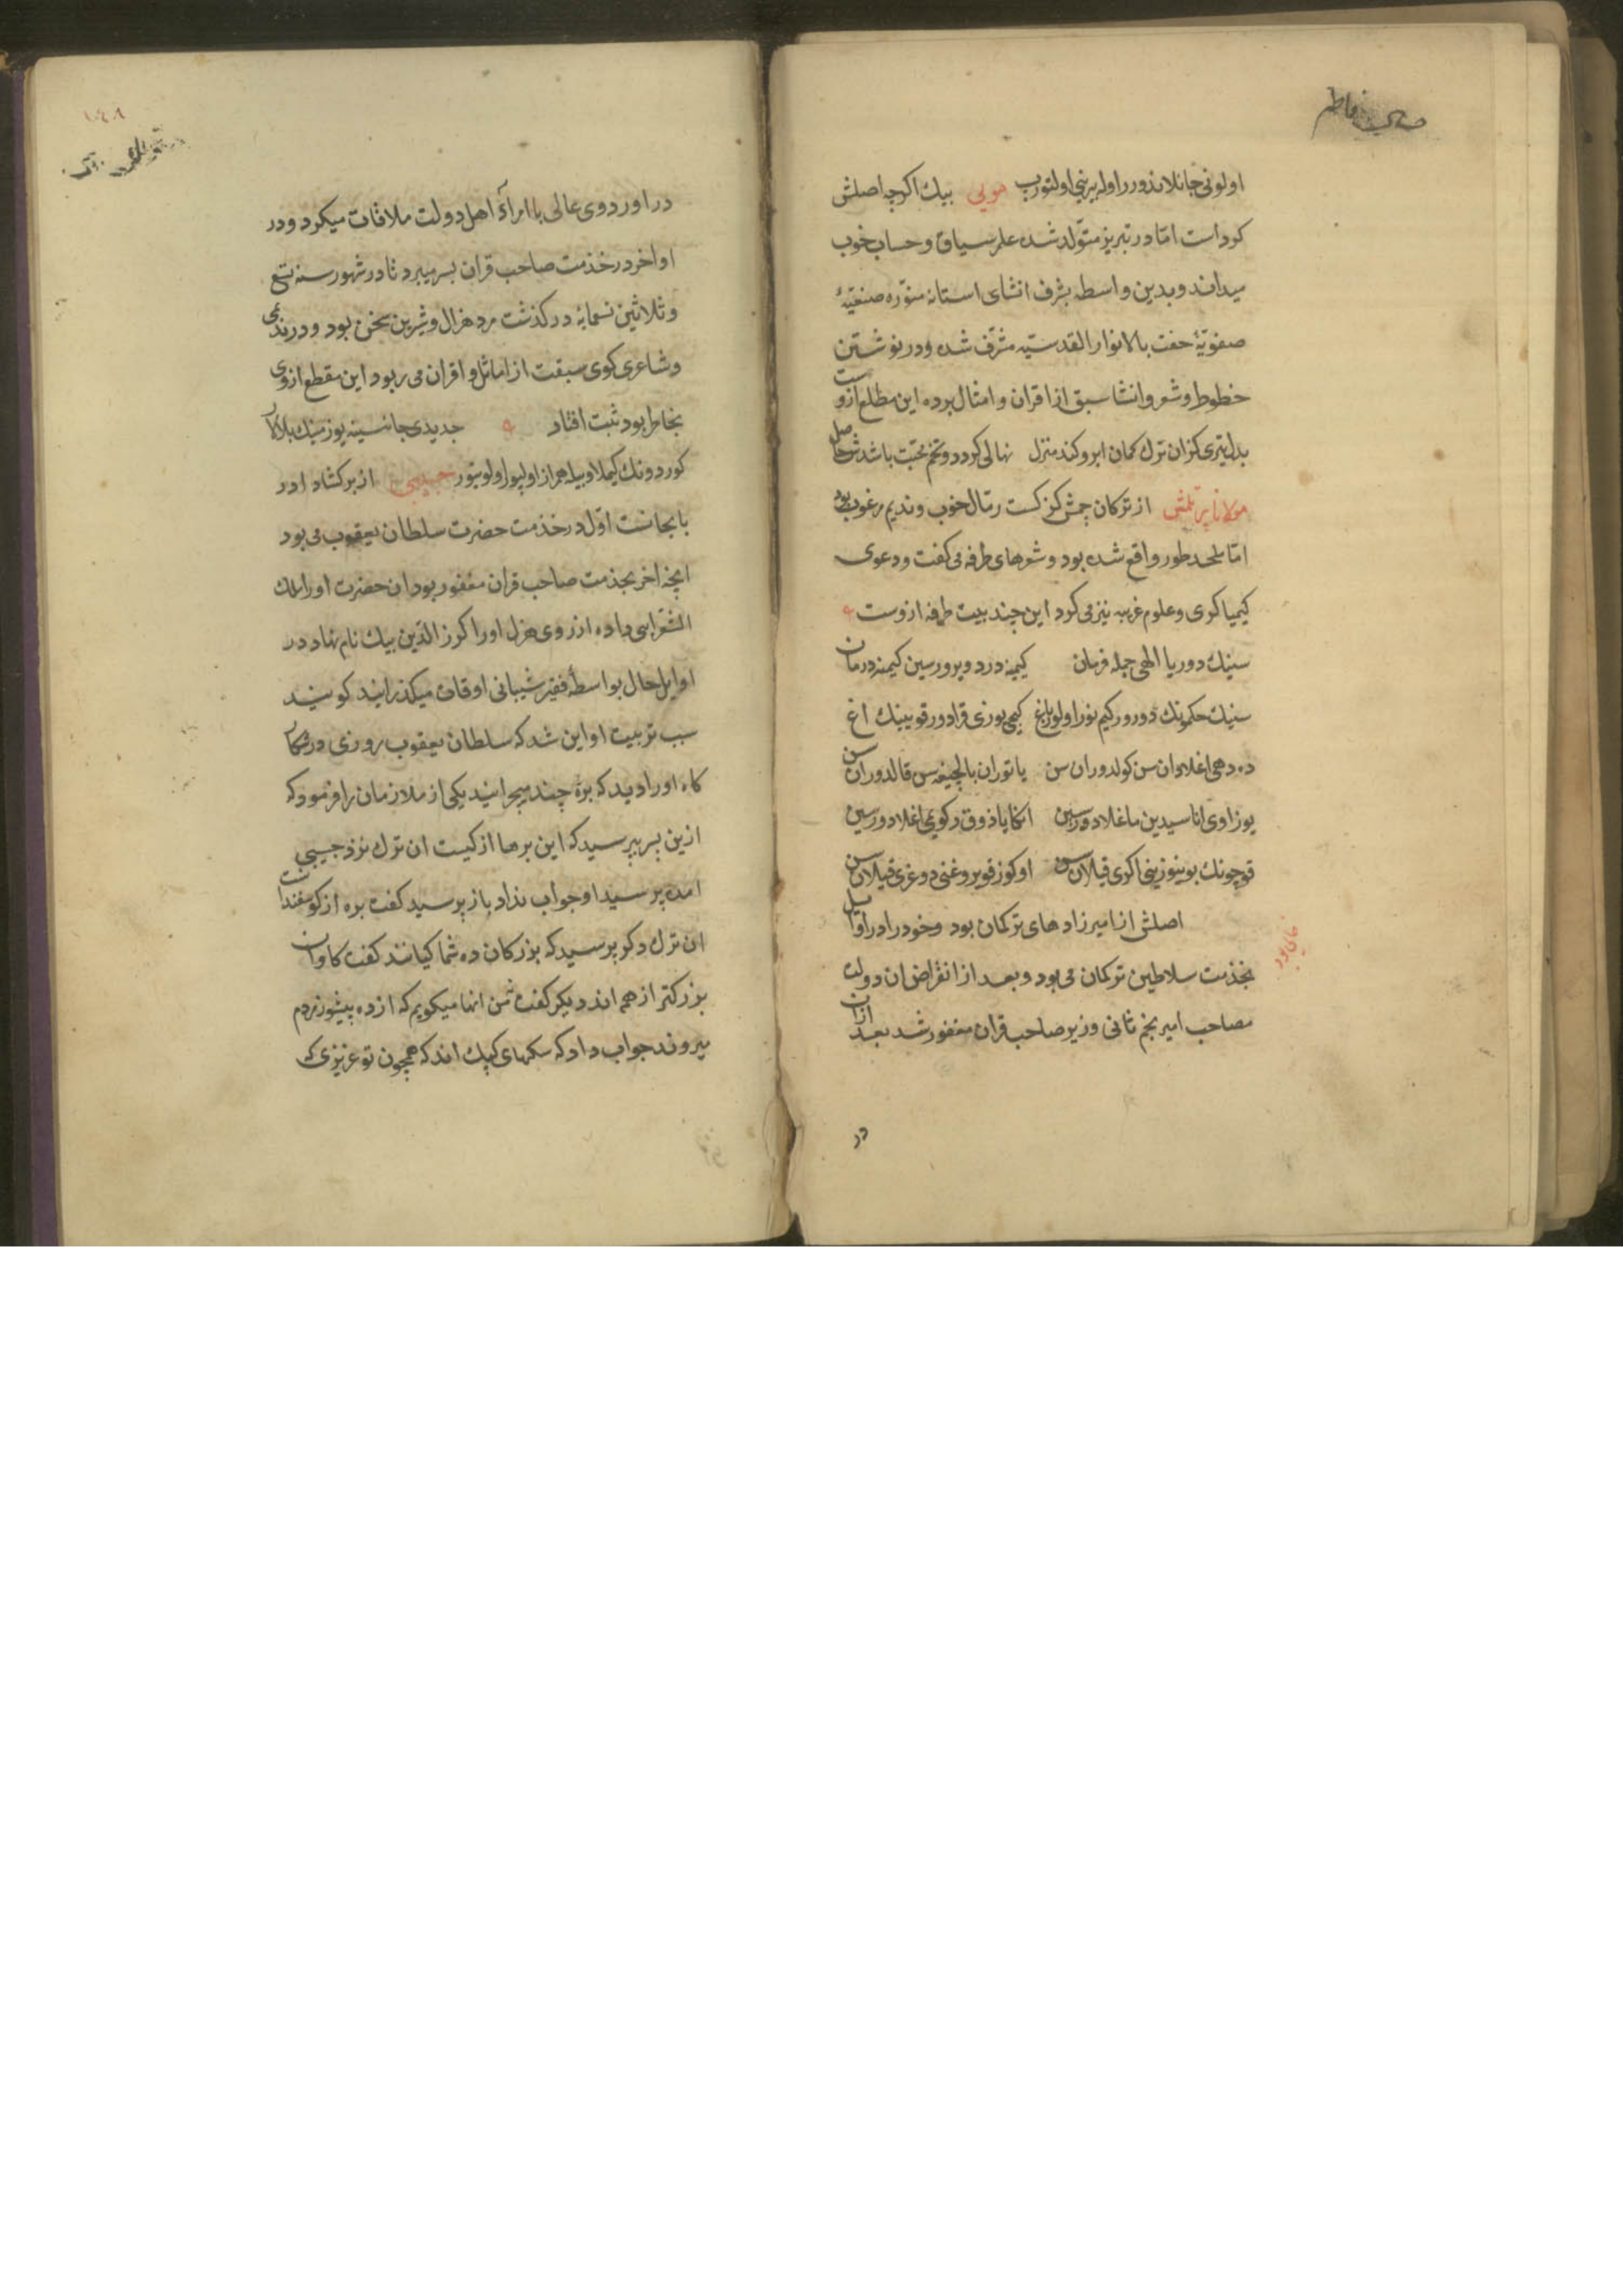 اولونی جانلاندورر اوله یرینی اولتورب هویی بیك اکرچه اصلش
کرد است امّا در تبریز متولّد شده علم سیاق و حساب خوب
میداند و بدین واسطه بشرف انشای استانه منوّره
صفویّهٔ حفت بالانوار القدسیّه مشرّف شده و در نوشتن
خطوط و شعر و انشا سبق از اقران و امثال برده این مطلع ازوست
بدل تیری کزان ترك کمان ابرو کند منزل نهالی کردد و تخم محبّت باشدش حاصل
مولانا از ترکان چمش کزکست رمّال خوب و ندیم مرغوب بود
امّا ملحد طور واقع شده بود و شعرهای طرفه می کفت و دعوی
کیمیا کری و علوم غریبه نیز می کرد این چند بیت طرفه ازوست
سنیك دور یا الهی جمله فرمان کیمینه درد ویرورسین کیمنه درمان
سنیك حکمونك دورور کیم نور اولور یاغ کیمی یوزی قرادور قویینك اغ
ده دهی اغلادان سن کولدوران سن یاتوران بالچیغه سن قالدوران سن
یوز اوی اناسیدین ما غلادورسین اکا یا ذوق در کویمی اغلادورسین
قوچونك بوینوزینی اکری قیلان سن اوکوز قویروغنی دوغری قیلان سن
اصلش از امیرزادهای ترکمان بود و خود را در اوایل
بخذمت سلاطین ترکمان می بود و بعد از انقراض ان دولت
مصاحب امیر نجم ثانی وزیر صاحب قران مغفور شد بعد ازان
در
۱۴۸
در اوردوی عالی با امراء اهل دولت ملاقات میکرد و در
اواخر در خذمت صاحب قران بسر میبرد تا در شهور سنه تسع
و ثلاثین تسعمایه در کذشت مرد هزال و شیرین سخن بود و در ندیمی
و شاعری کوی سبقت از اماثل و اقران می ربود این مقطع ازوی
بخاطر بود ثبت افتاد جدیدی جانسینه یوز مینك بلالار
کوردونك کیملا وبیله همراز اولیور اولوبتور حبیبی از برکشاد ادر
بایجانست اوّل در خذمت حضرت سلطان یعقوب می بود
اخر بخذمت صاحب قران مغفور بود ان حضرت او را ملك
الشعرایی داده از روی هزل او را کرز الدّین بیك نام نهاد در
اوایل حال بواسطهٔ فقر شبانی اوقات میکذرانید کویند
سبب تربیت او این شد که سلطان یعقوب روزی در شکار
کاه او را دید که برهٔ چند میچرانید یکی از ملازمان را فرمود که
ازین پسر بپرسید که این برها از کیست ان ترك نزد حبیبی
امده پرسید او جواب نداد باز پرسید کفت بره از کوسفندانست
ان ترك دکر پرسید که بزرکان ده شما کیانند کفت کاوان
بزرکتر از همه اند دیکر کفت من انها میکویم که از ده پیشوز مردم
میروند جواب داد که سکهای کپك اند که همچون تو عزیزی که